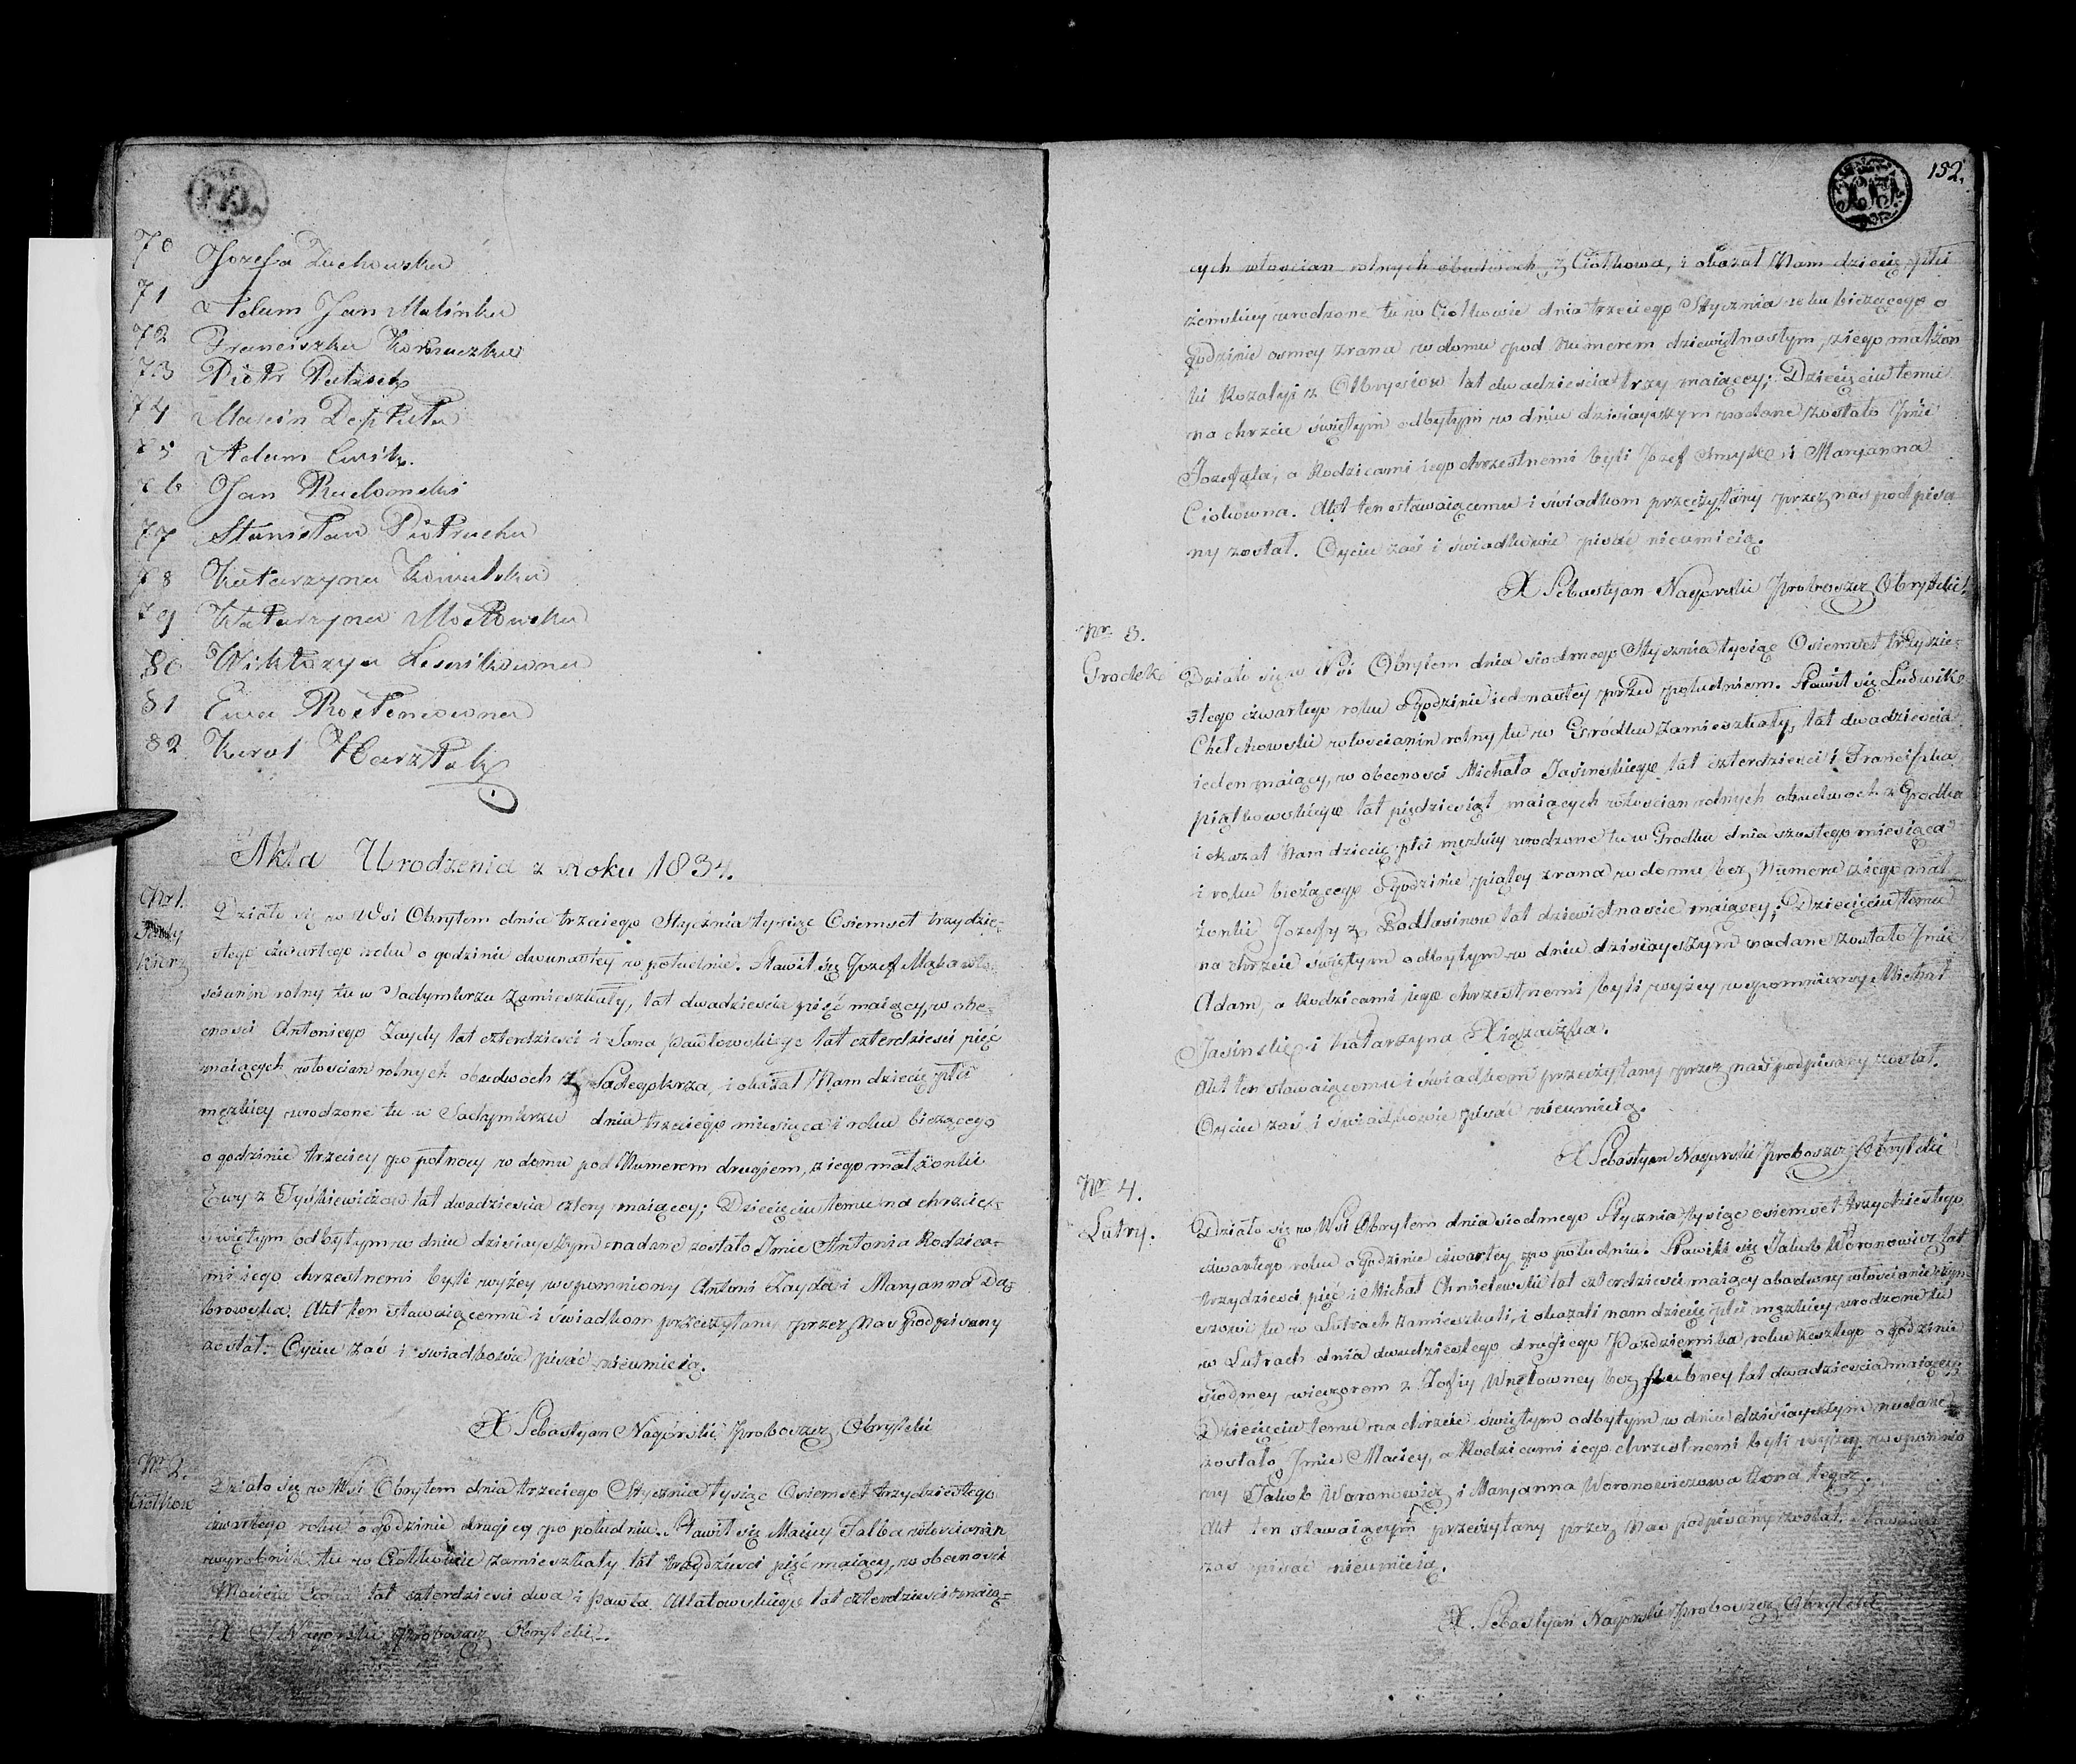 70 Jozefa Zuchowska
71 Adam Jan Malinka
72 Franciszka
73 Piotr
74 Marcin Deptuła
75 Adam Ewik
76 Jan Radomski
77 Stanisław Piotrucha
78 Katarzyna Kowalska
79 Katarzyna Mostowska
80 Wiktorya Lesnikowna
81 Ewa
82 Karol
Akta Urodzenia z Roku 1834.
Nr 1.
Sady
kierz
Działo się w Wsi Obrytem dnia trzeciego Stycznia tysiąc Osiemset trzydzie-
stego czwartego roku o godzinie dwunastey w południe. Stawił się Jozef włó-
scianin rolny tu w Sadymkrzu Zamieszkały, lat dwadzieścia pięć maiący, w obe-
cnosci Antoniego Zaydy lat czterdziesci i Jana Pawłowskiego lat czterdziesci pięć
maiących włoscian rolnych obudwoch z Sadegokrza, i okazał Nam dziecię płci
męzkiey urodzone tu w Sadymkrzu dnia trzeciego miesiąca i roku bieżącego
o godzinie trzeciey po połnocy w domu pod Numerem drugiem, z iego małżonki
Ewy z Tyśkiewiczow lat dwadziescia cztery maiącey; Dziecięciu temu na chrzcie
świętym odbytym w dniu dzisiayszym nadane zostało Imie Antoni a Rodzica-
mi iego chrzestnemi byli wyżey wspomniony Antoni Zayda i Maryanna Dą-
browska. Akt ten stawaiącemu i świadkom przeczytany przez Nas podpisany
został. Oyciec zaś i swiadkowie pisać nieumieią.
X Sebastyan Nagórski Proboszcz Obrytski
Nr 2.
Ciołkow
Działo się w Wsi Obrytem dnia trzeciego Stycznia tysiąc Osiemset trzydziestego
czwartego roku o godzinie drugiey po południu. Stawił się Maciey Falba włościanin
wyrobnik tu w Ciołkowie zamieszkały lat trzydziesci pięć maiący, w obecnosci
Macieia Ciotka lat czterdziesci dwa i Pawła Ałatowskiego lat czterdziesci maią-
X S Nagorski Proboszcz Obrytski.
152.
cych włoscian rolnych obudwoch z Ciołkowa, i okazał Nam dziecię płci
żenskiey urodzone tu w Ciołkowie dnia trzeciego Stycznia roku bieżącego o
godzinie osmey zrana w domu pod Numerem dziewiętnastym, z iego małżon
ki Rozalyi z Olbrysiow lat dwadziescia trzy maiącey; Dziecięciu temu
na chrzcie świętym odbytym w dniu dzisiayszym nadane zostało Imie
Jozefata, a Rodzicami iego chrzestnemi byli Józef Smyk i Maryanna
Ciołkowna. Akt ten stawaiącemu i świadkom przeczytany przez nas podpisa
ny został. Oyciec zaś i świadkowie pisać nieumieią.
X Sebastyan Nagorski Proboszcz Obrytski.
Nr 3.
Grodek
Działo się w Wsi Obrytem dnia siodmego Stycznia tysiąc Osiemset trzydzie-
stego czwartego roku o godzinie iedenastey przed południem. Stawił się Ludwik
Chełchowski włościanin rolny tu w Gródku Zamieszkały, lat dwadzieścia
ieden maiący, w obecnosci Michała Jasinskiego lat czterdziesci i Franciszka
Piątkowskiego lat pięćdziesiąt maiących włoscian rolnych obudwoch z Grodka
i okazał Nam dziecię płci męzkiey urodzone tu w Grodku dnia szostego miesiąca
i roku bieżącego o godzinie piątey zrana w domu bez Numeru z iego mał
żonki Jozefy z Podlasinow lat dziewiętnascie maiącey; Dziecięciu temu
na chrzcie świętym odbytym w dniu dzisiayszym nadane zostało Imie
Adam, a Rodzicami iego chrzestnemi byli wyżey wspomniany Michał
Jasinski i Katarzyna Xiązaizka.
Akt ten stawaiącemu i świadkom przeczytany przez nas podpisany został.
Oyciec zaś i świadkowie pisać nieumieią.
X Sebastyan Nagorski Proboszcz Obrytski
Nr 4.
Lutry.
Działo się w Wsi Obrytem dnia siodmego Stycznia tysiąc osiemset trzydziestego
czwartego roku o godzinie czwartey po południu. Stawili się Jakub Woronowicz lat
trzydziesci pięć i Michał Chmielewski lat czterdziesci maiący obadway włościanie czyn-
szowi tu w Lutrach zamieszkali, i okazali nam dziecię płci męzkiey urodzone tu
w Lutrach dnia dwudziestego drugiego Pazdziernika roku zeszłego o godzinie
siodmey wieczorem z Zofiy Wnękowney bez slubney lat dwadziescia maiącey;
Dziecięciu temu na chrzcie świętym odbytym w dniu dzisiayszym nadane
zostało Imie Maciey, a Rodzicami iego chrzestnemi byli wyżey wspomnio
ny Jakob Waranowicz i Maryanna Woronowiczowa Żona tegoż.
Akt ten stawaiącym przeczytany przez Nas podpisany został. Stawaiący
zas pisać nieumieią.
X. Sebastyan Nagorski Proboszcz Obrytski